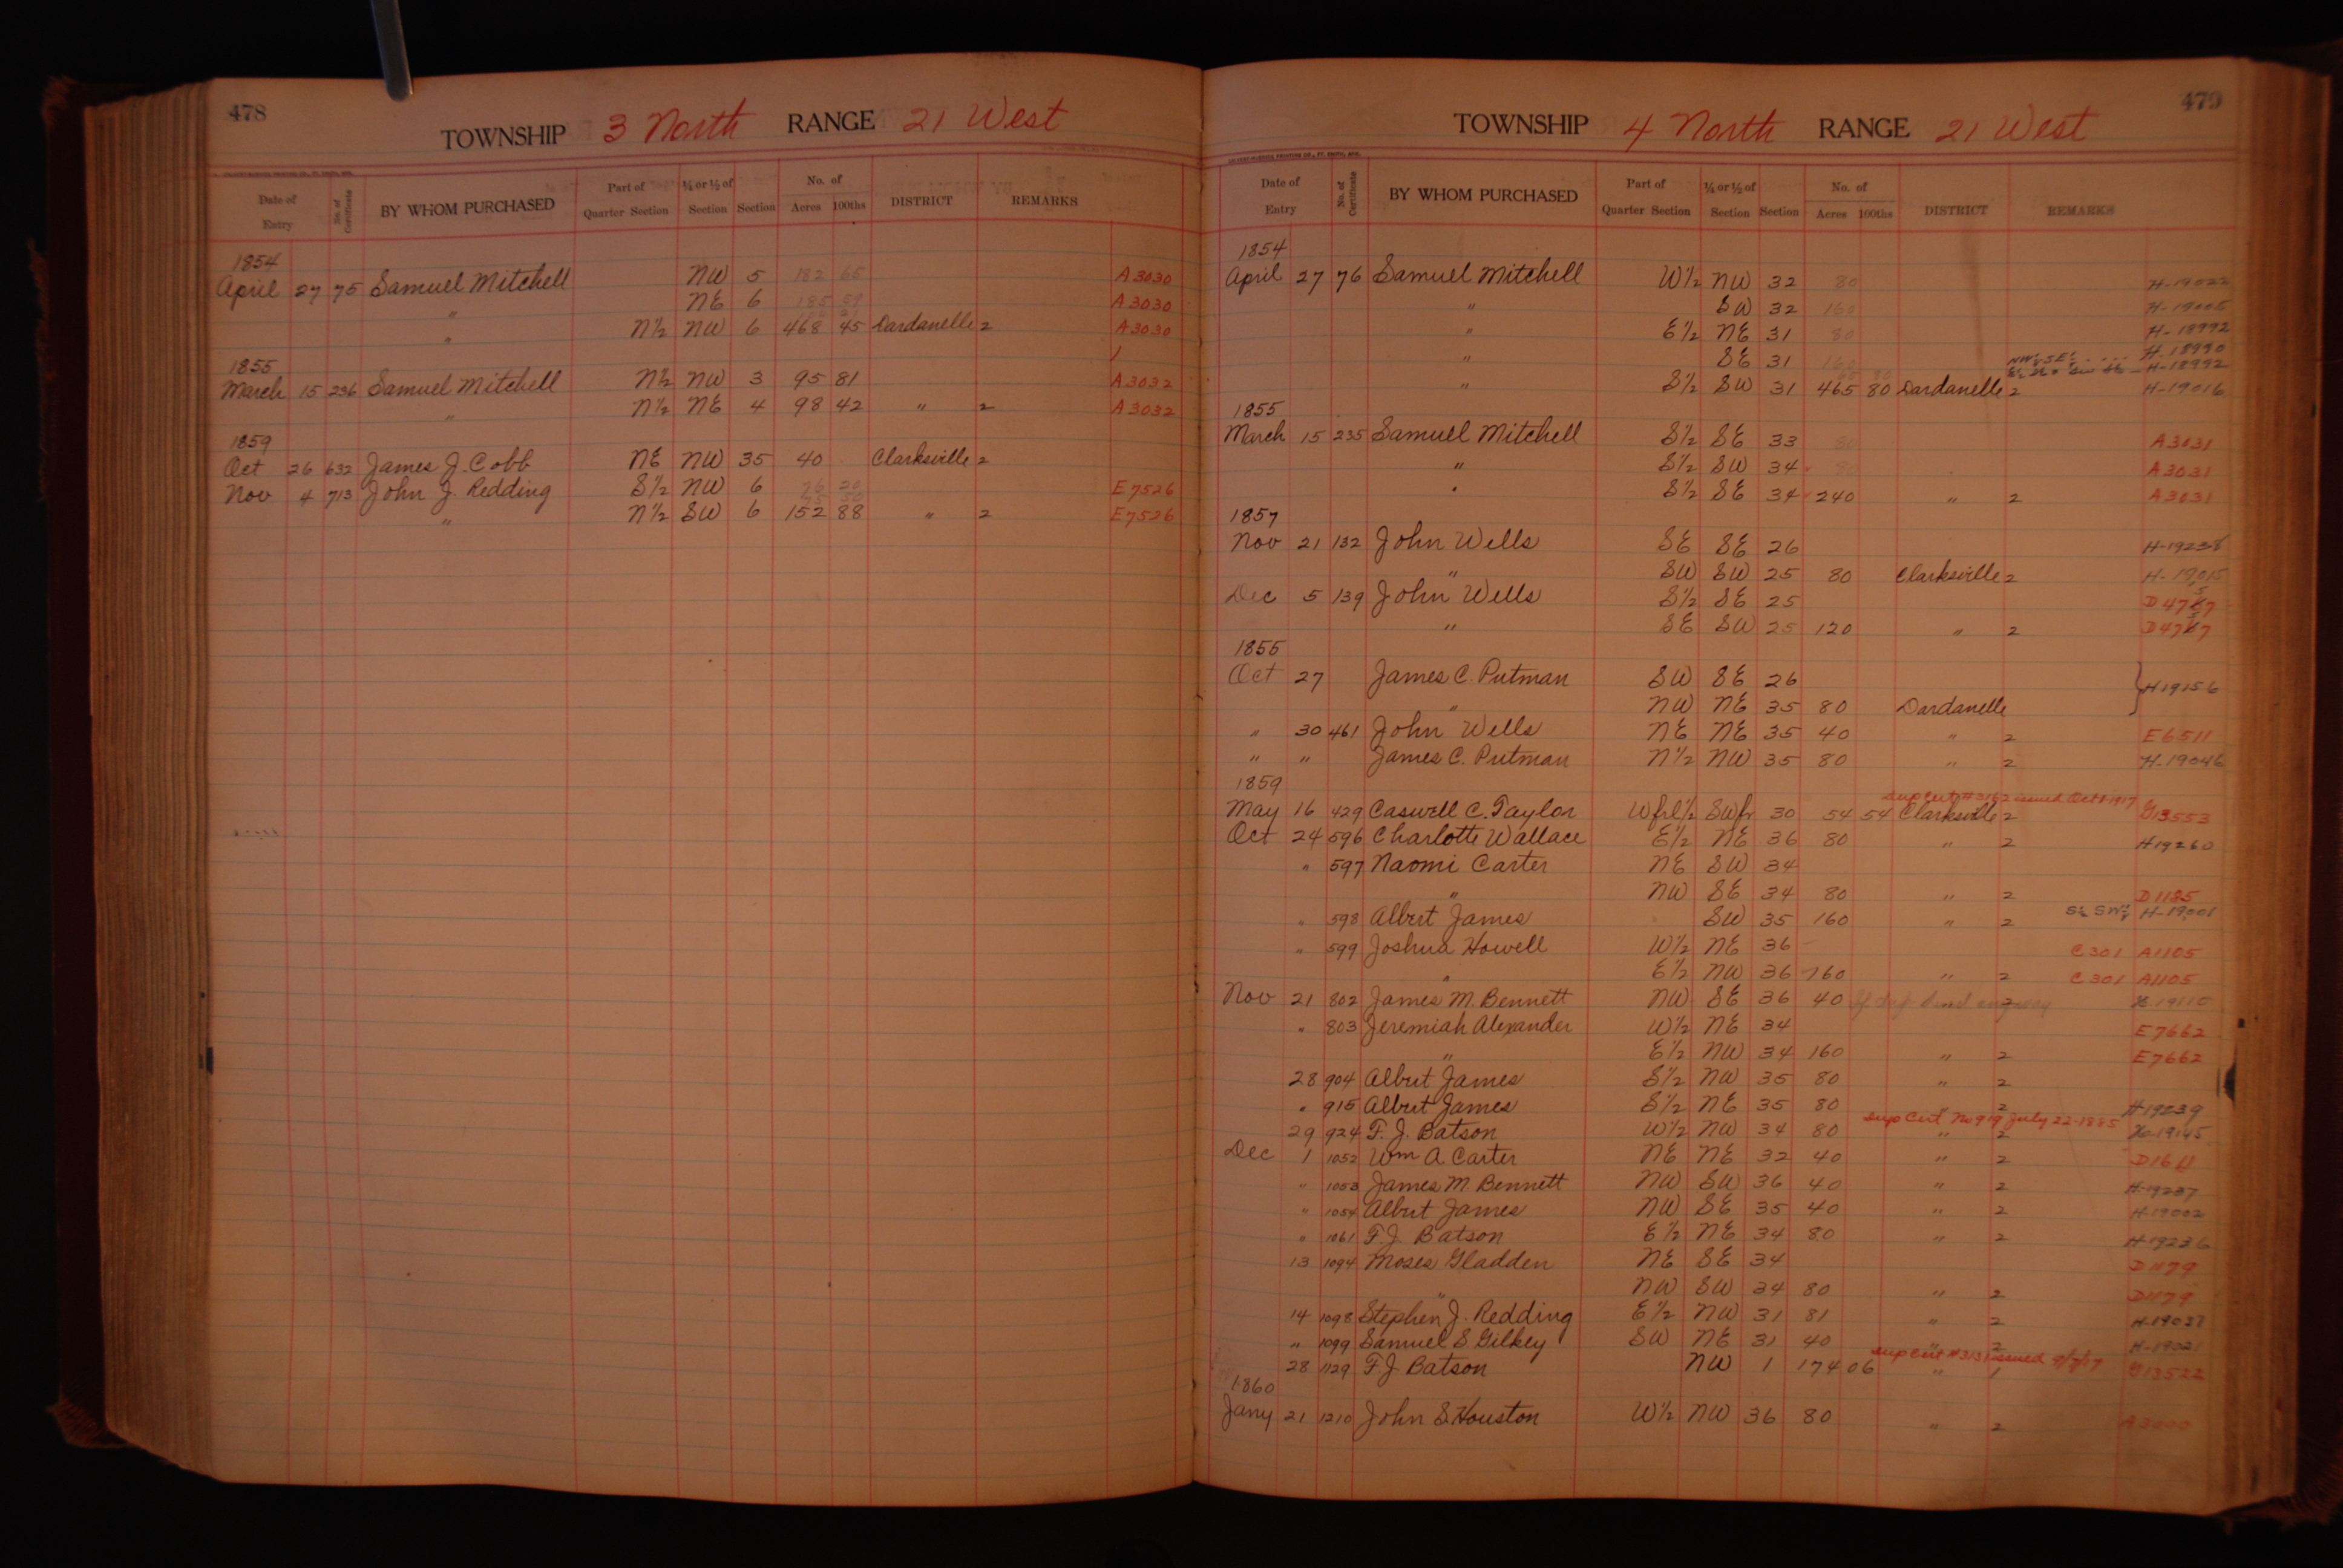 478
TOWNSHIP 3 North RANGE 21 West
Date of Entry No. of Certificate BY WHOM PURCHASED Part of Quarter Section ¼ or ½ of Section Section No. of Acres 100ths DISTRICT REMARKS
1854
April 27 75 Samuel Mitchell NW 5 182 65 A3030
" NE 6 185 59 A3030
" N½ NW 6 468 45 Dardanelle 2 A3030
1855
March 15 236 Samuel Mitchell N½ NW 3 95 81 A3032
" N½ NE 4 98 42 " 2 A3032
1859
Oct 26 632 James J. Cobb NE NW 35 40 Clarksville 2
Nov 4 713 John J. Redding S½ NW 6 76 20 E7526
" N½ SW 6 152 88 " 2 E7526
479
TOWNSHIP 4 North RANGE 21 West
Date of Entry No. of Certificate BY WHOM PURCHASED Part of Quarter Section ¼ or ½ of Section Section No. of Acres 100ths DISTRICT REMARKS
1854
April 27 76 Samuel Mitchell W½ NW 32 80 H-19022
" SW 32 160 H-19005
" E½ NE 31 80 H-18992
" SE 31 160 H-18990
H-18992
" S½ SW 31 465 80 Dardanelle 2 H-19016
1855
March 15 235 Samuel Mitchell S½ SE 33 80 A3031
" S½ SW 34 80 A3031
" S½ SE 34 240 " 2 A3031
1857
Nov 21 132 John Wells SE SE 26 H-19238
" SW SW 25 80 Clarksville 2 H-19015
Dec 5 139 John Wells S½ SE 25
" SE SW 25 120 " 2
1855
Oct 27 James C. Putman SW SE 26 H19156
" NW NE 35 80 Dardanelle
" 30 461 John Wells NE NE 35 40 " 2 E6511
" " James C. Putman N½ NW 35 80 " 2 H-19046
1859
sup Cert # 3162 issued Oct 1-1917
May 16 429 Caswell C. Taylor W frl½ SW fr 30 54 54 Clarksville 2 G13553
Oct 24 596 Charlotte Wallace E½ NE 36 80 " 2 H19260
" 597 Naomi Carter NE SW 34
" NW SE 34 80 " 2 D1185
" 598 Albert James SW 35 160 " 2 H-19001
" 599 Joshua Howell W½ NE 36 C301 A1105
" E½ NW 36 160 " 2 C301 A1105
Nov 21 802 James M. Bennett NW SE 36 40 H-19110
" 803 Jeremiah Alexander W½ NE 34 E7662
" E½ NW 34 160 " 2 E7662
28 904 Albert James S½ NW 35 80 " 2
" 915 Albert James S½ NE 35 80 " 2 H19239
sup Cert No 919 July 22-1885
29 924 F. J. Batson W½ NW 34 80 " 2 H-19145
Dec 1 1052 Wm A Carter NE NE 32 40 " 2
" 1053 James M. Bennett NW SW 36 40 " 2 H-19237
" 1054 Albert James NW SE 35 40 " 2 H-19002
" 1061 F.J. Batson E½ NE 34 80 " 2 H-19236
13 1094 Moses Gladden NE SE 34 D1179
" NW SW 34 80 " 2 D1179
14 1098 Stephen J. Redding E½ NW 31 81 " 2 H-19037
" 1099 Samuel S Gilkey SW NE 31 40 " 2 H-19021
sup Cert # 3131 issued
28 1129 F J Batson NW 1 174 06 " 1 G13522
1860
Jany 21 1210 John S. Houston W½ NW 36 80 " 2 A3000